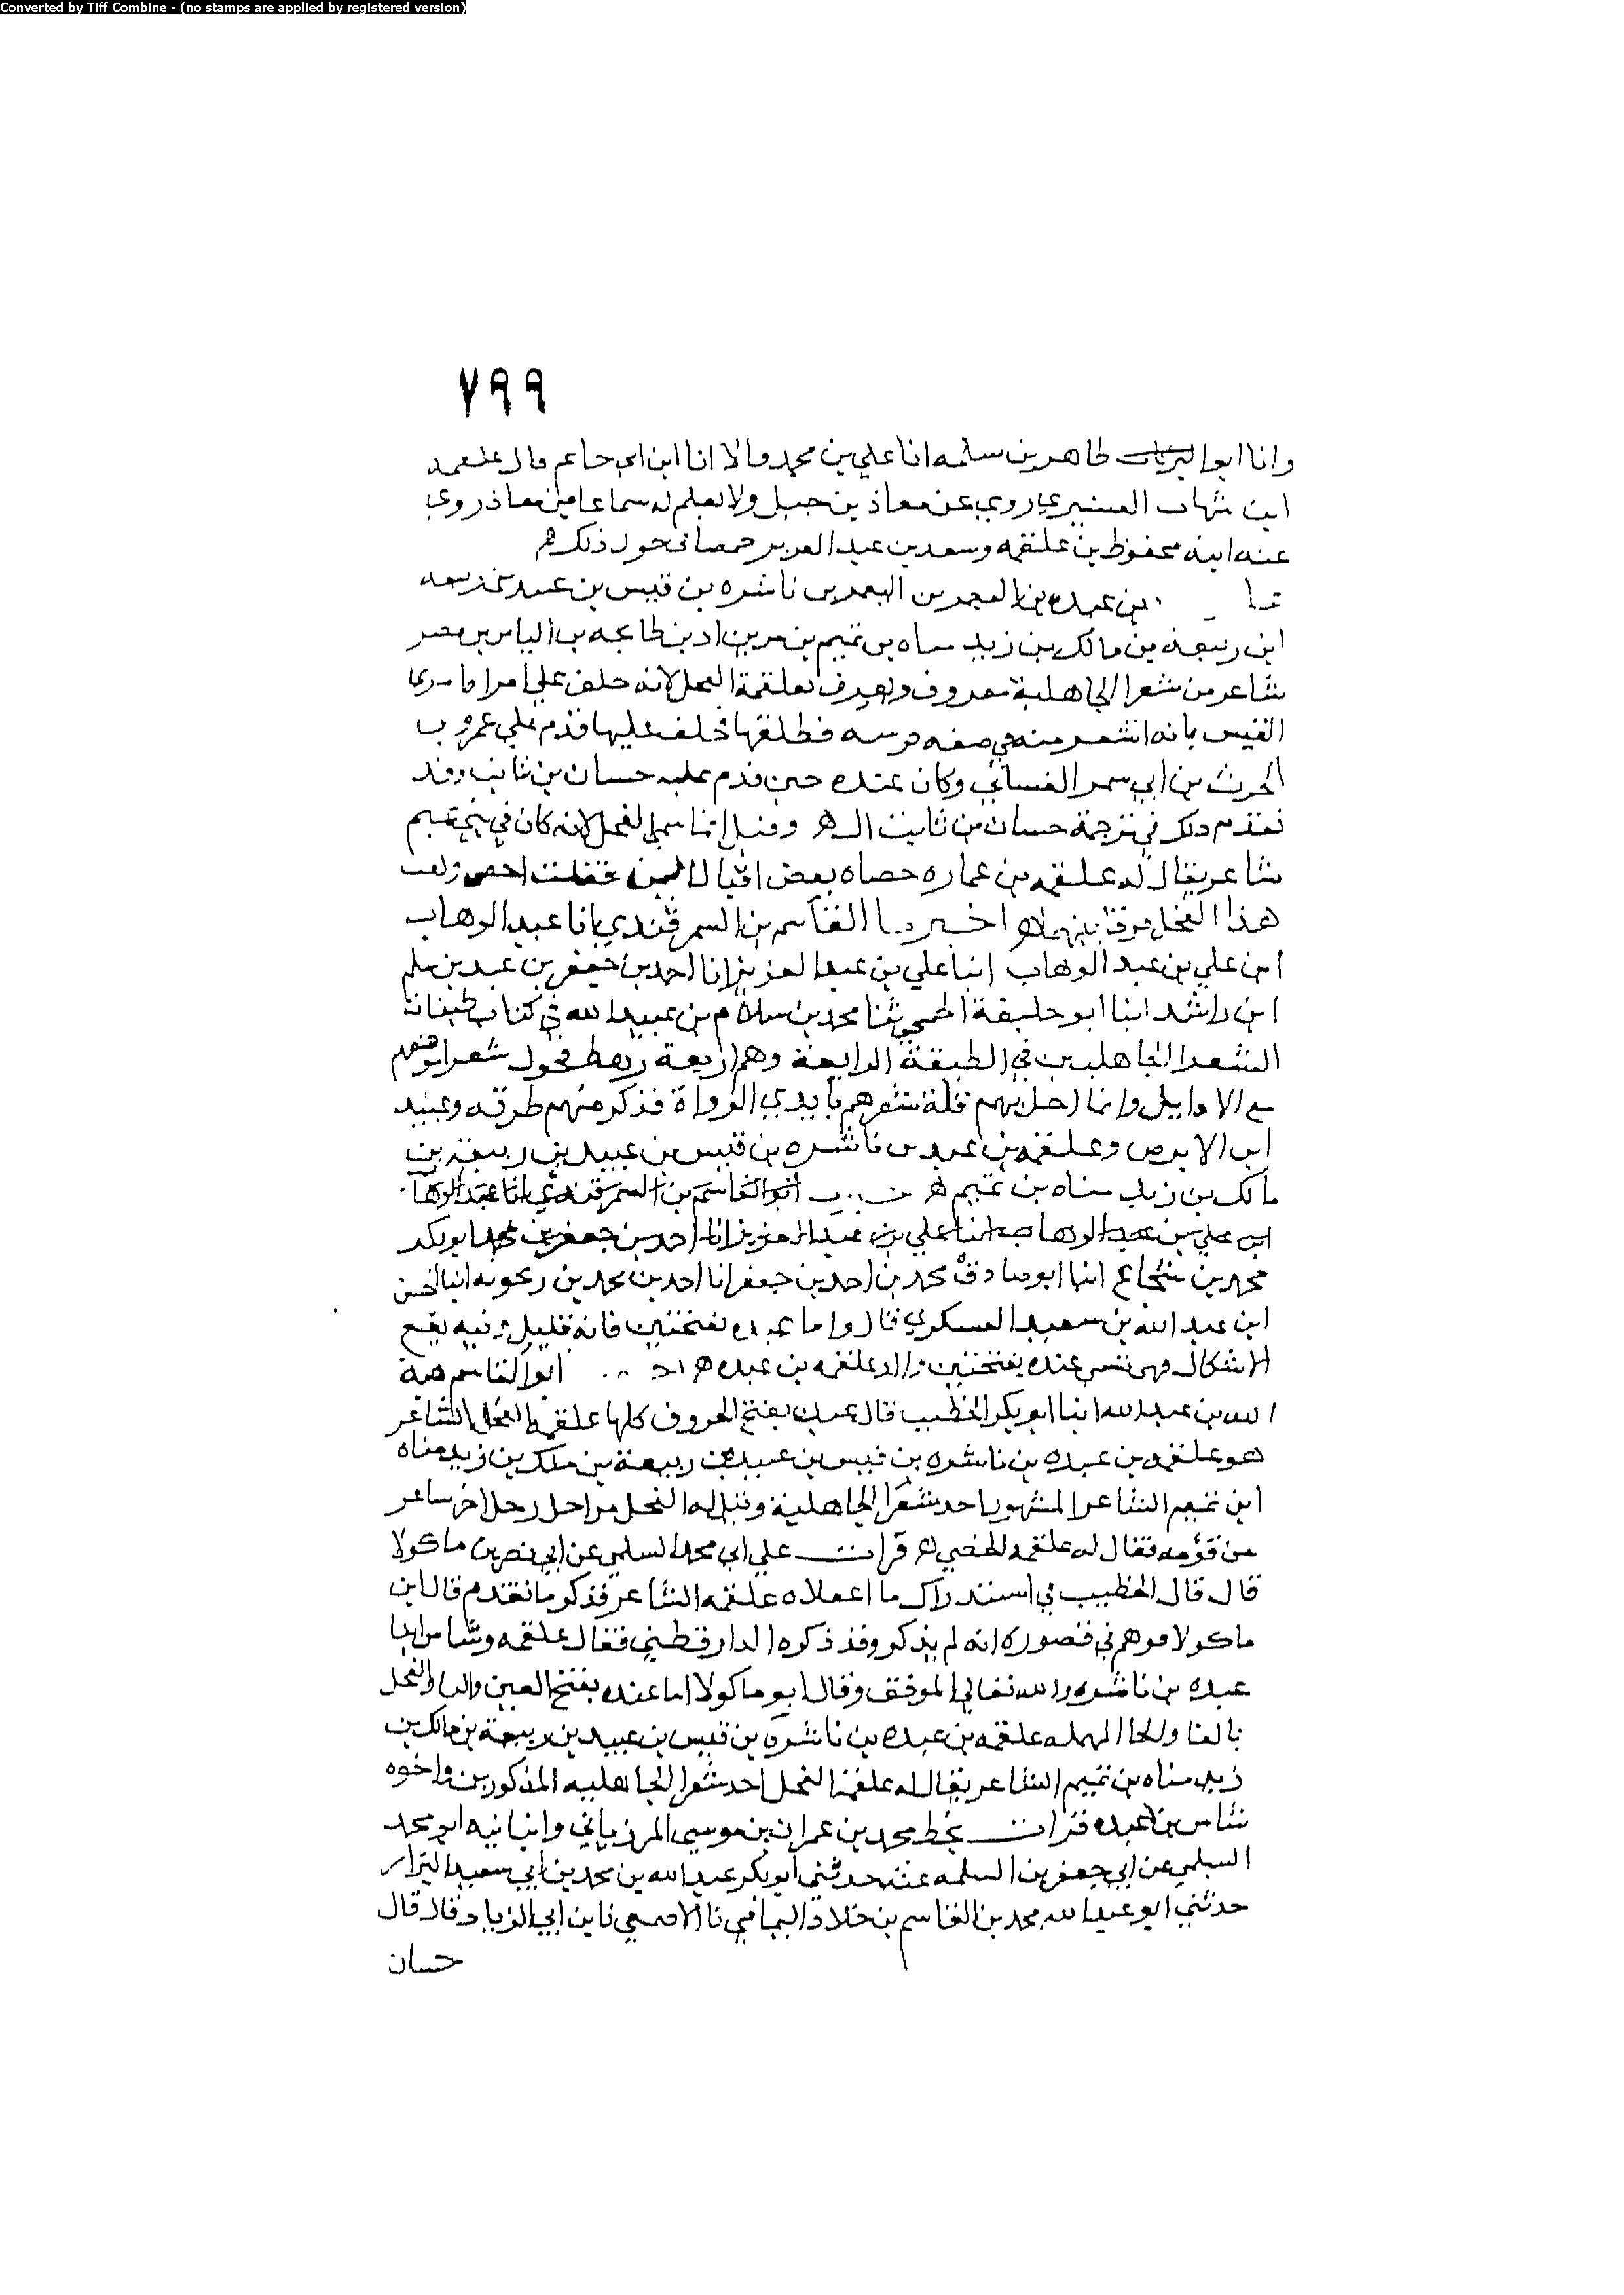 Converted by Tiff Combine - (no stamps are applied by registered version)
٧٩٩
وانا ابو البركات طاهر بن سلمه انا علي بن محمد قالا انا ابن ابي حاتم قال علقمه
ابن شهاب القشيري روي عن معاذ بن جبل ولا يعلم له سماعا من معاذ روي
عنه ابنه محفوظ بن علقمه وسعيد بن عبد العزيز
بن عبده بن ناشره بن قيس بن عبيد
ابن ربيعة بن مالك بن زيد مناه بن تميم بن مر بن اد بن طابخه بن الياس بن مضر
شاعر من شعرا الجاهلية معروف ويعرف بعلقمة الفحل لانه خلف علي امراه امري
القيس بانه اشعر منه في صفه فرسه فطلقها فخلف عليها قدم علي عمرو بن
الحرث بن ابي سمر الغساني وكان عنده حين قدم عليه حسان بن ثابت وقد
تقدم ذلك في ترجمة حسان بن ثابت وقيل انما سمي الفحل لانه كان في بني تميم
شاعر يقال له علقمه بن عماره خصاه بعض اقيال اليمن
هذا الفحل فرقا بينهما اخبرنا القاسم بن السمرقندي انا عبد الوهاب
ابن علي بن عبد الوهاب انبا علي بن عبد العزيز انا احمد بن جعفر بن عبيد بن سلم
ابن راشد انبا ابو خليفة الجمحي ثنا محمد بن سلام بن عبيد الله في كتاب طبقات
الشعرا الجاهليين في الطبقة الرابعة وهم اربعة رهط فحول شعرا موضعهم
مع الاوايل وانما اخل بهم قلة شعرهم بايدي الرواة فذكر منهم طرفه وعبيد
ابن الابرص وعلقمه بن عبده بن ناشره بن قيس بن عبيد بن ربيعه بن
مالك بن زيد مناه بن تميم ابو القاسم بن السمرقندي انا عبد الوهاب
ابن علي بن عبد الوهاب انبا علي بن عبد العزيز انا احمد بن جعفر بن محمد ابو بكر
محمد بن شجاع انبا ابو صادق محمد بن احمد بن جعفر انا احمد بن محمد بن زنجويه انبا الحسن
ابن عبد الله بن سعيد العسكري قال واما عبده بفتحتين فانه قليل وفيه يقع
الاشكال عبده بفتحتين والد علقمه بن عبده ابو القاسم هبة
الله بن عبد الله انبا ابو بكر الخطيب قال عبده بفتح الحروف كلها علقمه الفحل الشاعر
هو علقمه بن عبده بن ناشره بن قيس بن عبيد بن ربيعة بن ملك بن زيد مناه
ابن تميم الشاعر المشهور احد شعرا الجاهلية وقيل له الفحل من اجل رجل اخر شاعر
من قومه فقال له علقمه الخصي قرات علي ابي محمد السلمي عن ابي نصر بن ماكولا
قال قال الخطيب في استدراك ما اغفلاه علقمه الشاعر فذكر ما تقدم قال ابن
ماكولا فوهم في قصوره انه لم يذكر وقد ذكره الدارقطني فقال علقمه وشاس ابنا
عبده بن ناشره والله تعالي الموفق وقال ابو ماكولا اما عبده بفتح العين والبا والفحل
بالفا والحا المهمله علقمه بن عبده بن ناشره بن قيس بن عبيد بن ربيعة بن مالك بن
زيد مناه بن تميم الشاعر يقال له علقمة الفحل احد شعرا الجاهليه المذكورين واخوه
شاس بن عبده قرات بخط محمد بن عمران بن موسي المرزباني وانبانيه ابو محمد
السلمي عن ابي جعفر بن المسلمه عنه حدثني ابو بكر عبد الله بن محمد بن ابي سعيد البزار
حدثني ابو عبد الله محمد بن القاسم بن خلاد اليمامي نا الاصمعي نا بن ابي الزناد قال قال
حسان